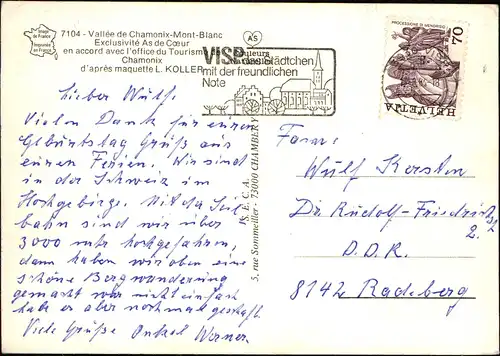 7104 - Vallée de Chamonix-Mont-Blanc
Exclusivité As de Cœur
en accord avec l'office du Tourisme de
Chamonix
d'après maquette L. KOLLER
Image de France
Imprimée en France
AS
Couleurs
VISP das Städtchen
mit der freundlichen
Note
PROCESSIONE DI MENDRISIO
70
HELVETIA
S.E.C.A.
5, rue Sommeiller - 73000 CHAMBERY
Lieber Wulf.
Vielen Dank für euren
Geburtstag Gruß aus
euren Ferien. Wir sind
in der Schweiz im
Hochgebirge. Mit der Seil-
bahn sind wir über
3000 mtr hochgefahren,
dann haben wir oben eine
schöne Bergwanderung
gemacht war nicht einfach
hab es aber nochmal geschafft.
Viele Grüße Onkel Werner
Fam.
Wulf Kersten
Dr. Rudolf-Friedrichs
D.D.R.
8142 Radeberg